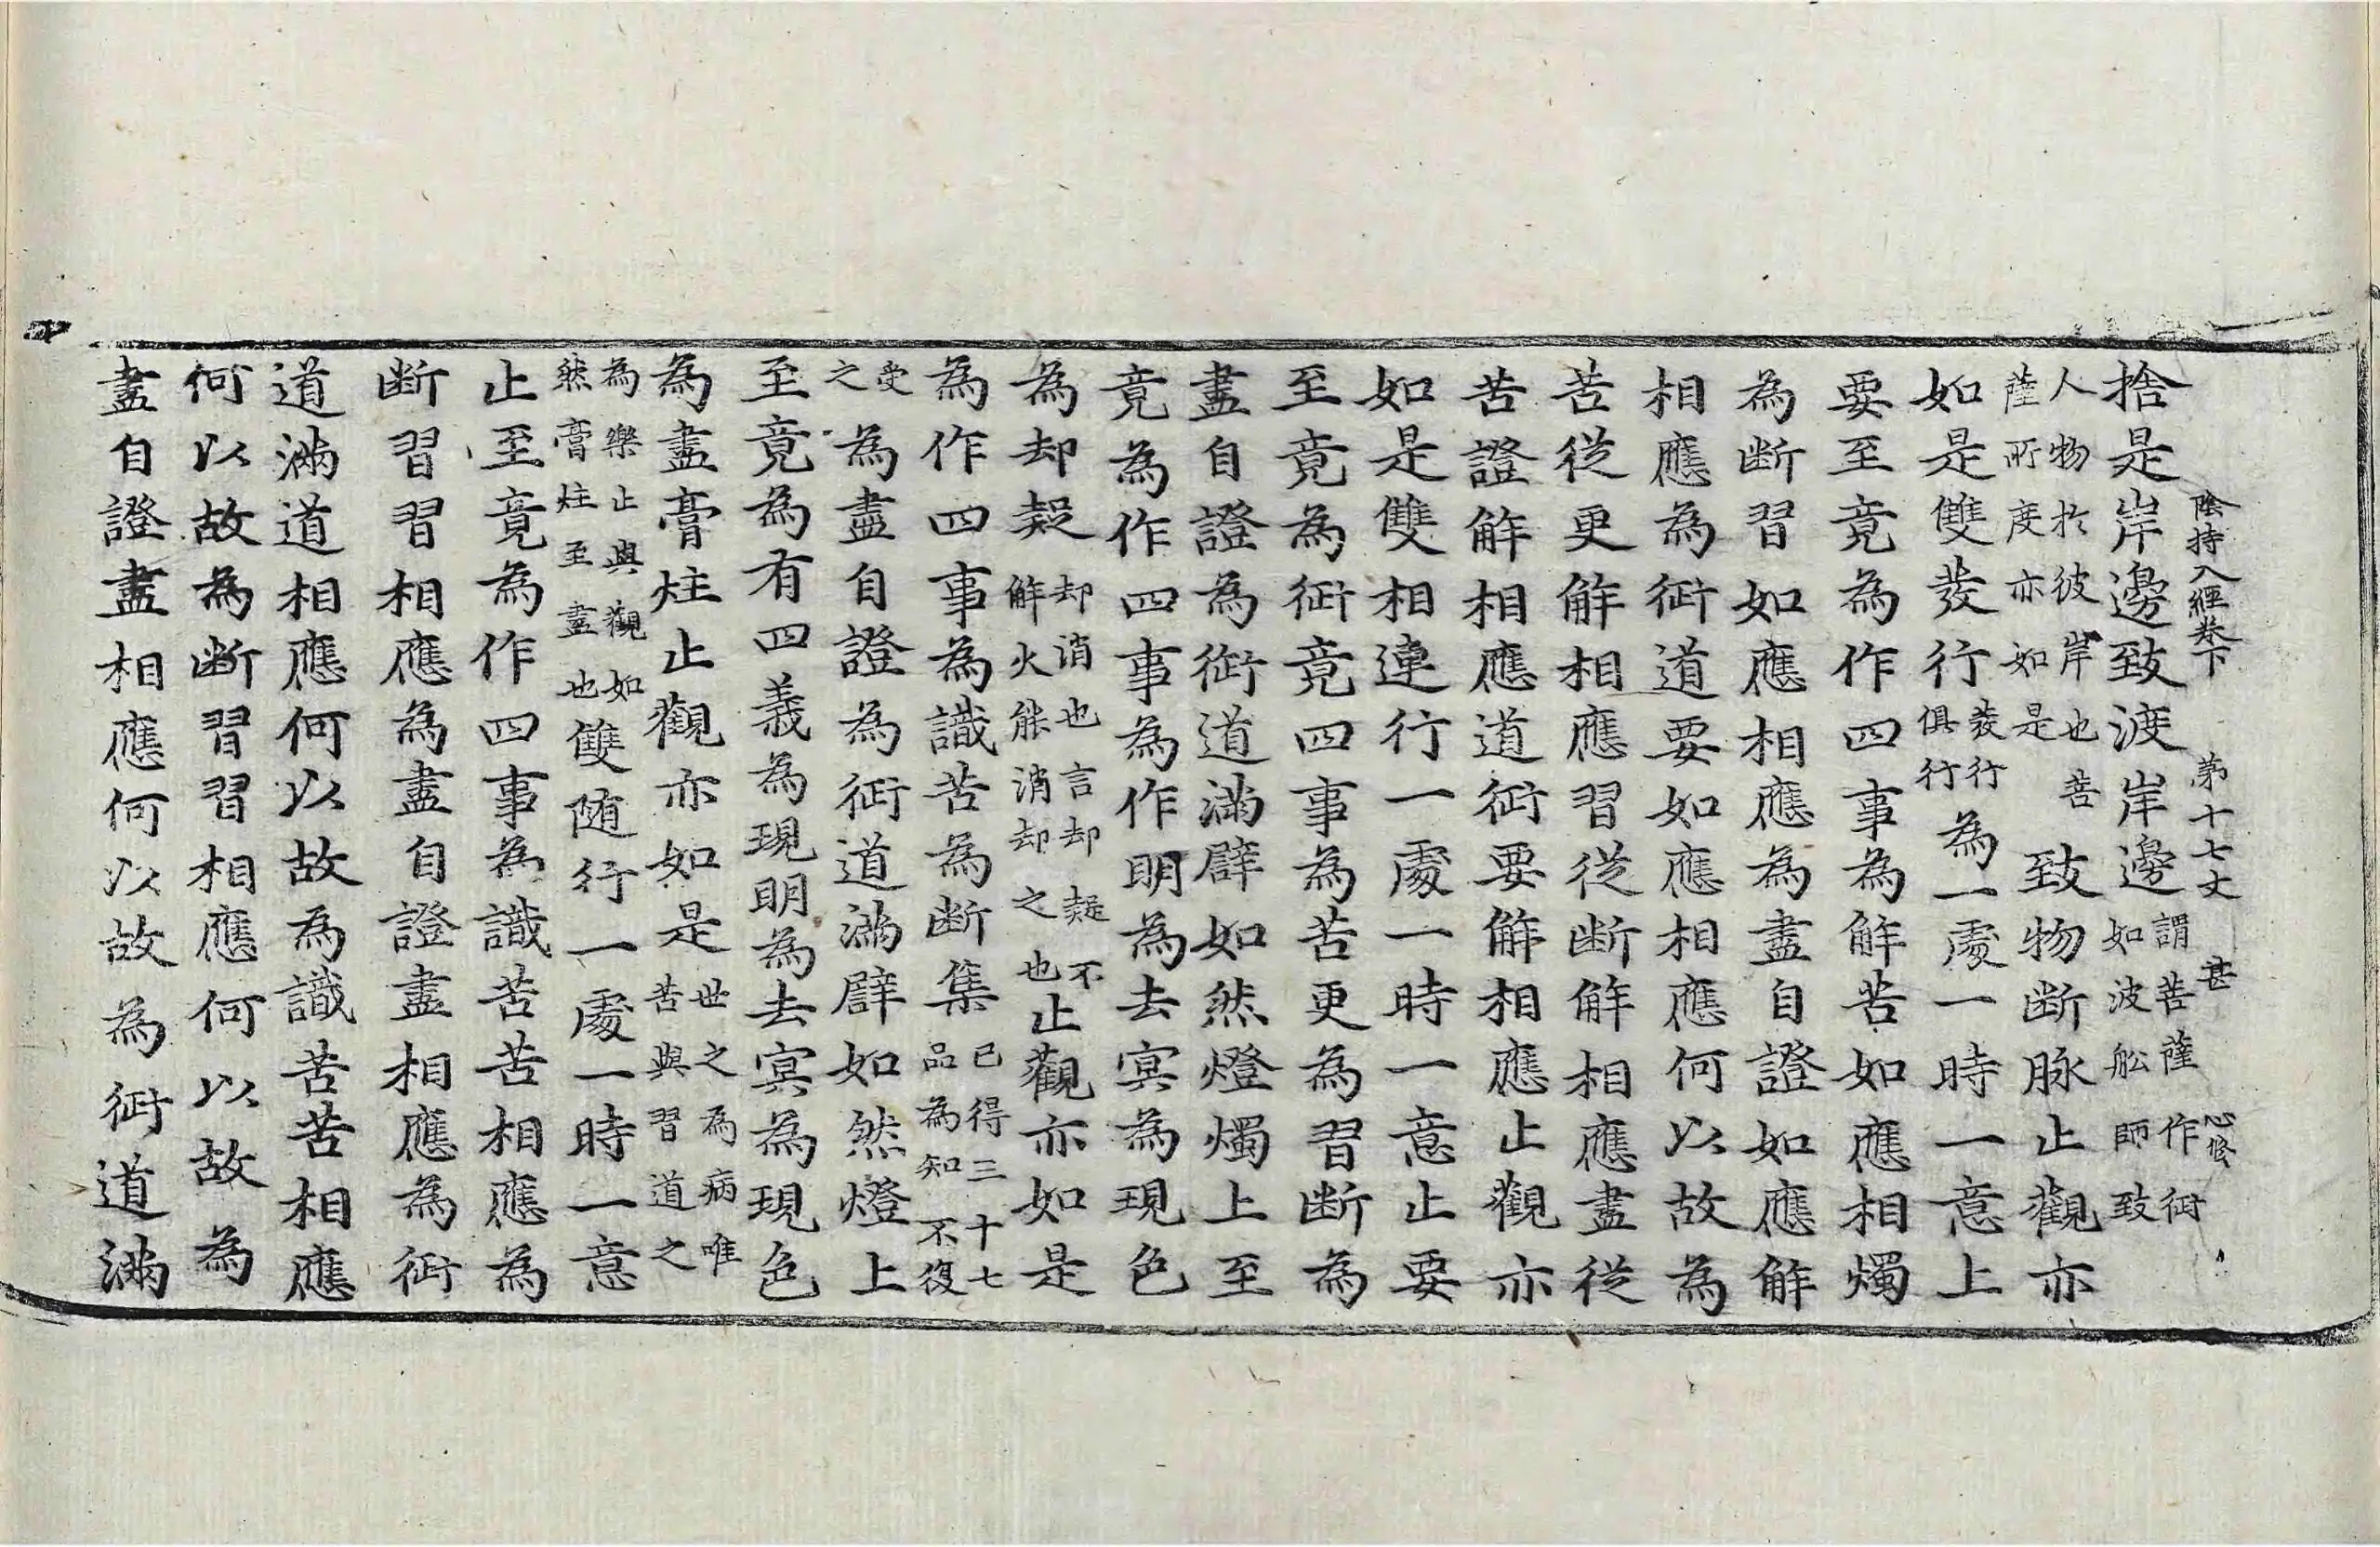 陰持入經卷下　第十七丈　甚　心修
捨是岸邊致渡岸邊謂菩薩作衏如波舩師致
人物於彼岸也菩薩所度亦如是致物断脉止觀亦
如是雙發行發行俱行為一處一時一意上
要至竟為作四事為解苦如應相燭
為断習如應相應為盡自證如應解
相應為衏道要如應相應何以故為
苦從更解相應習從断解相應盡從
苦證解相應道衏要解相應止觀亦
如是雙相連行一處一時一意止要
至竟為衏竟四事為苦更為習断為
盡自證為衏道滿譬如然燈燭上至
竟為作四事為作明為去冥為現色
為却疑却消也言却疑不解火能消却之也止觀亦如是
為作四事為識苦為断集已得三十七品為知不復
受之為盡自證為衏道滿譬如然燈上
至竟為有四義為現明為去冥為現色
為盡膏炷止觀亦如是世之為病唯苦與習道之
為樂止與觀如然膏炷至盡也雙随行一處一時一意
止至竟為作四事為識苦苦相應為
断習習相應為盡自證盡相應為衏
道滿道相應何以故為識苦苦相應
何以故為断習習相應何以故為
盡自證盡相應何以故為衏道滿